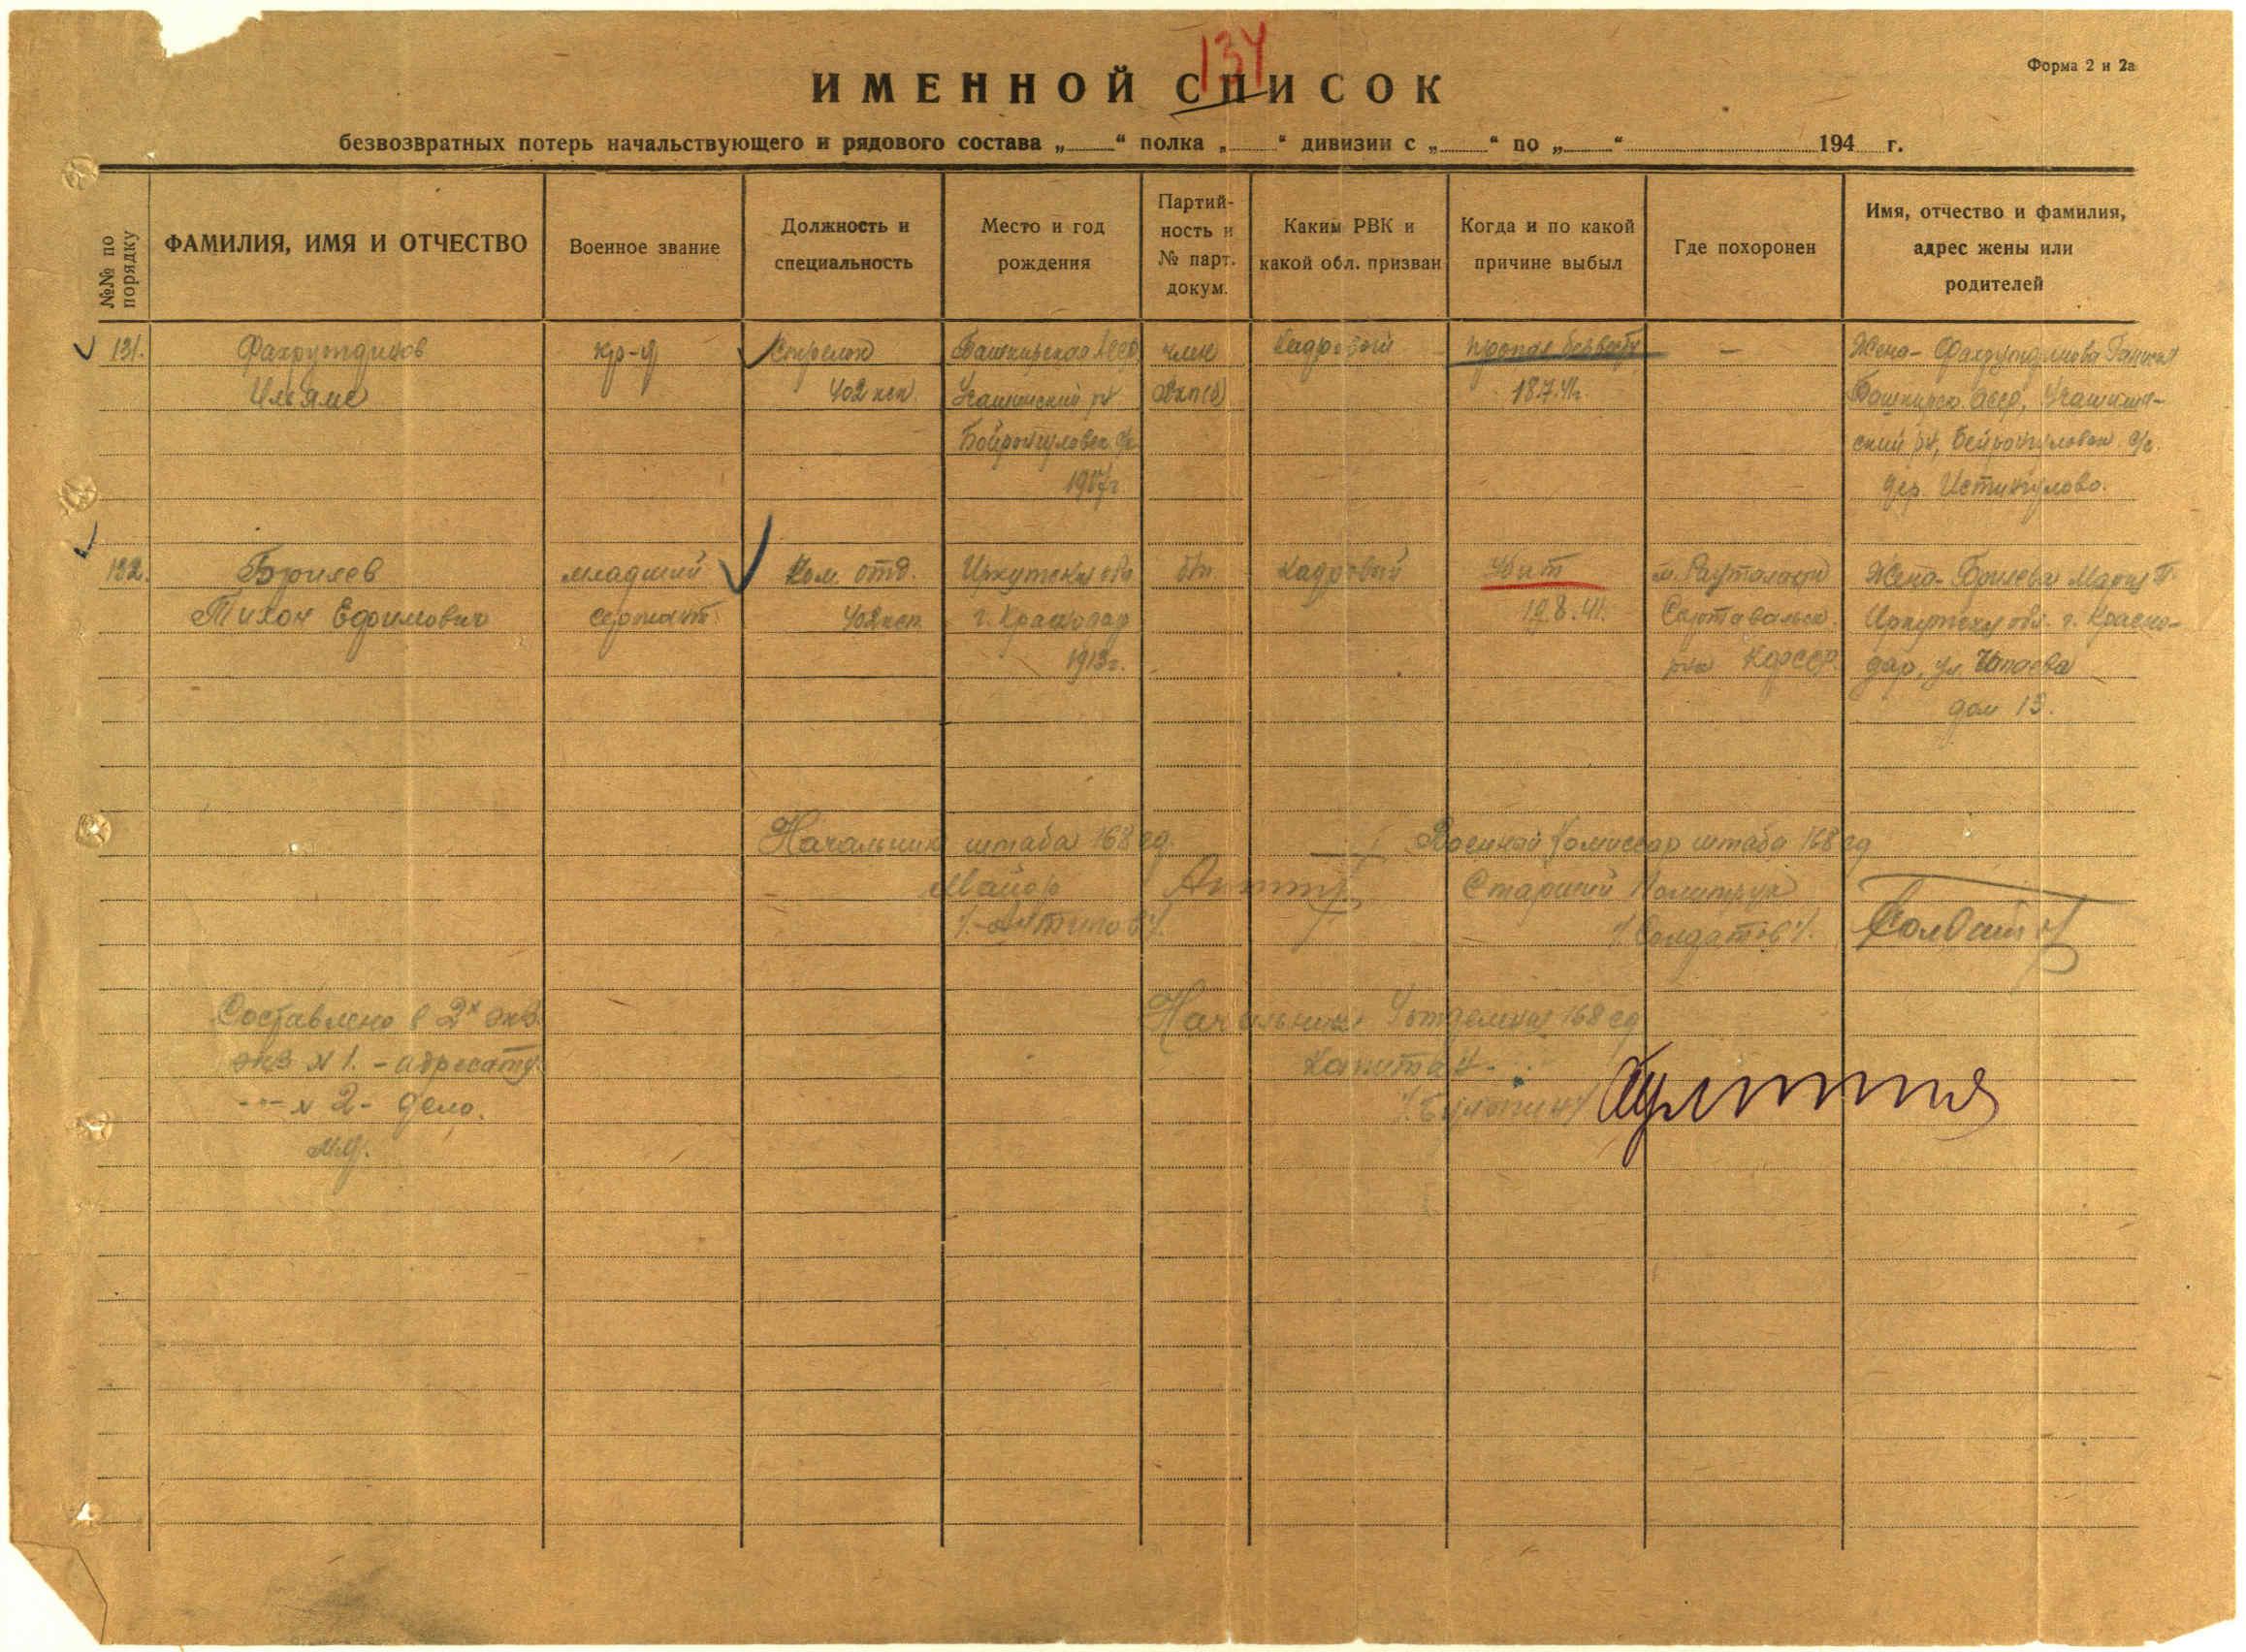 134
Форма 2 и 2а
ИМЕННОЙ СПИСОК
безвозвратных потерь начальствующего и рядового состава „ “ полка „ “ дивизии с „ “ по „ “ 194 г.
№№ по порядку
ФАМИЛИЯ, ИМЯ И ОТЧЕСТВО
Военное звание
Должность и
специальность
Место и год
рождения
Партий-
ность и
№ парт.
докум.
Каким РВК и
какой обл. призван
Когда и по какой
причине выбыл
Где похоронен
Имя, отчество и фамилия,
адрес жены или
родителей
131. Фахрутдинов кр-ц Стрелок Башкирская АССР член Кадровый пропал без вести — Жена - Фахрутдинова
Ильяс 402 ксп. 18.7.41. Башкирск. АССР,
1907г дер. Истинкулово.
132. Брилев младший Ком. отд. Иркутская обл б/п. Кадровый Убит м. Рауталахти Жена - Брилева Мария Т.
Тихон Ефимович сержант. 402 ксп г. Краснодар 19.8.41. Сортавальск. Иркутская обл. г. Красно-
1913г. р-на КФССР. дар, ул. Чапаева
дом 13.
Начальник штаба 168 сд. Военный Комиссар штаба 168 сд
Майор Старший Политрук
/. Антипов /. /. Солдатов /.
Составлено в 2х экз. Начальник 4 отделения 168 сд
экз № 1. - адресату. Капитан.
-"- № 2 - дело.